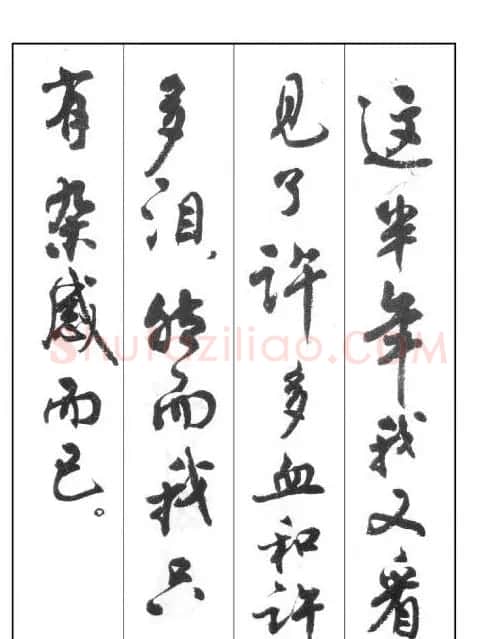 这半年我又看
见了许多血和许
多泪，然而我只
有杂感而已。
Shufaziliao.COM